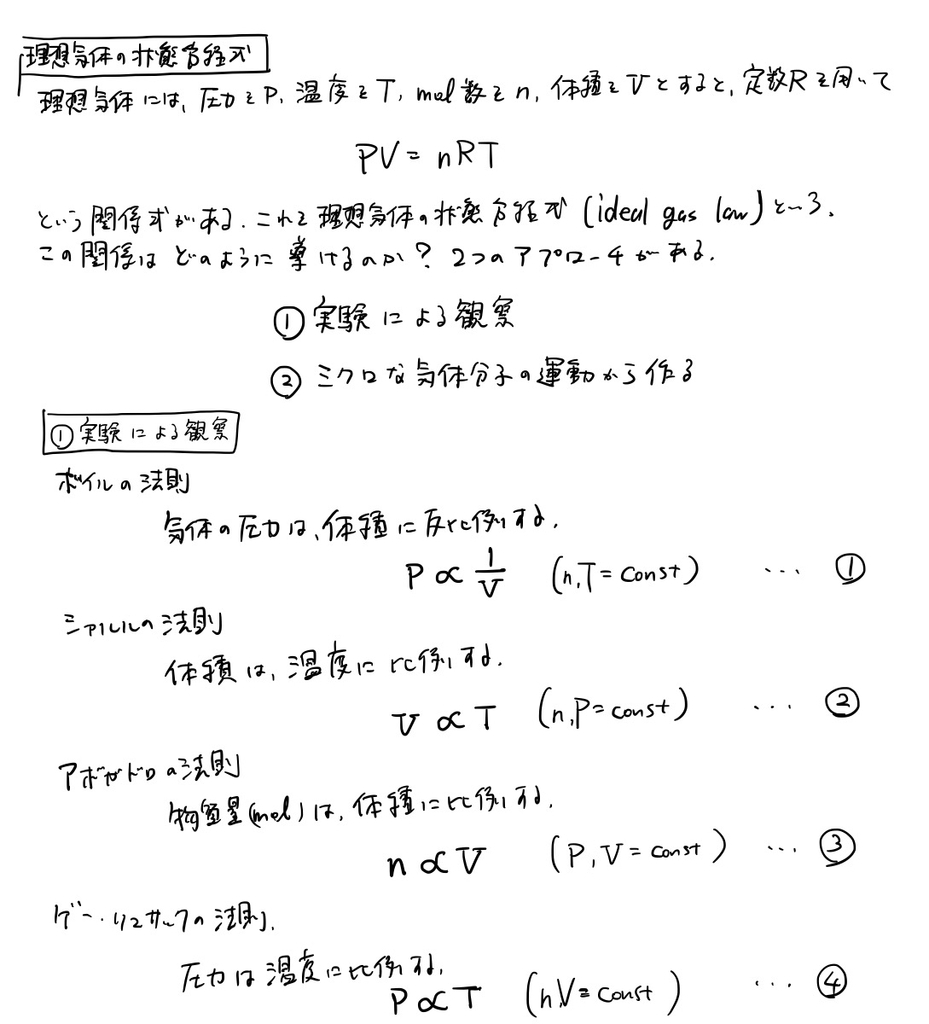 理想気体の状態方程式
理想気体には、圧力をP、温度をT、mol数をn、体積をVとすると、定数Rを用いて
PV = nRT
という関係式がある。これを理想気体の状態方程式 (ideal gas law) という。
この関係はどのように導けるのか? 2つのアプローチがある。
① 実験による観察
② ミクロな気体分子の運動から作る
① 実験による観察
ボイルの法則
気体の圧力は、体積に反比例する。
P ∝ 1/V (n,T = const) … ①
シャルルの法則
体積は、温度に比例する。
V ∝ T (n,P = const) … ②
アボガドロの法則
物質量(mol)は、体積に比例する。
n ∝ V (P,V = const) … ③
ゲー・リュサックの法則。
圧力は温度に比例する。
P ∝ T (n,V = const) … ④